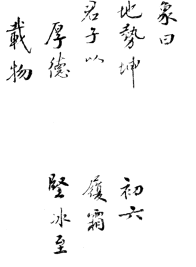 象曰
地勢坤
君子以
厚德
載物
初六
履霜
堅冰至